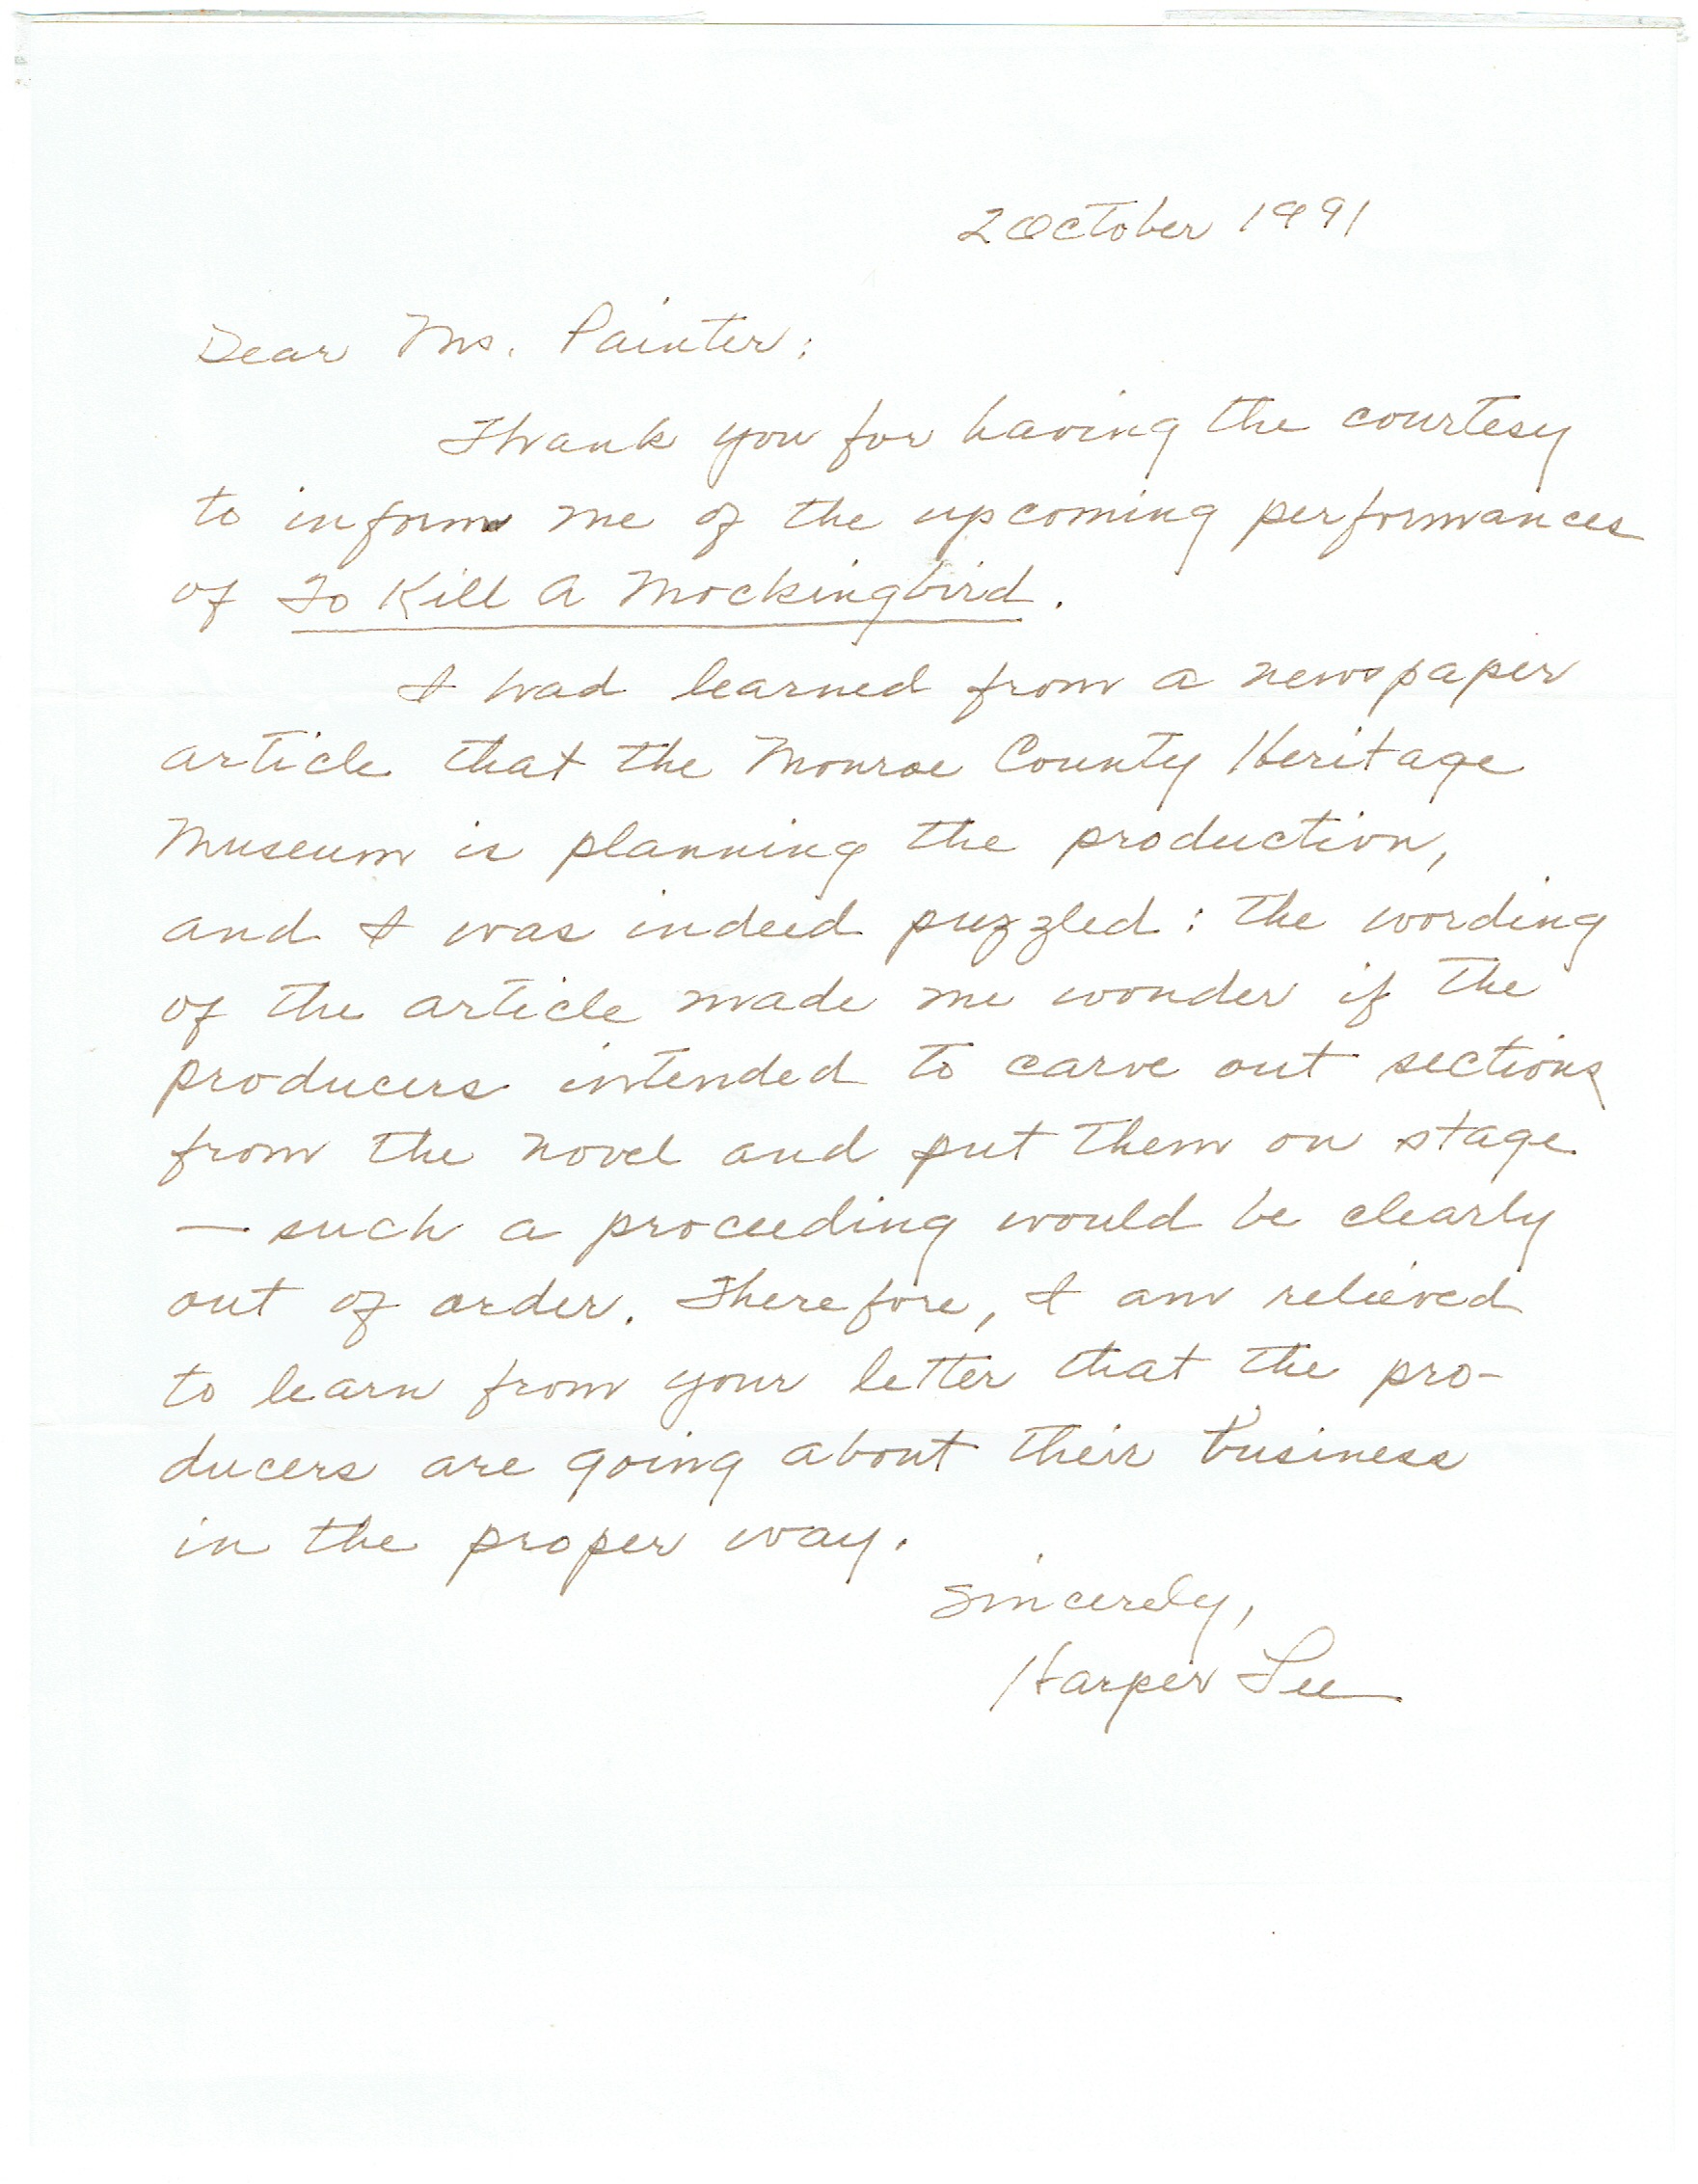 2 October 1991
Dear Ms. Painter:
Thank you for having the courtesy
to inform me of the upcoming performances
of To Kill A Mockingbird.
I had learned from a newspaper
article that the Monroe County Heritage
Museum is planning the production,
and I was indeed puzzled: the wording
of the article made me wonder if the
producers intended to carve out sections
from the novel and put them on stage
— such a proceeding would be clearly
out of order. Therefore, I am relieved
to learn from your letter that the pro-
ducers are going about their business
in the proper way.
Sincerely,
Harper Lee